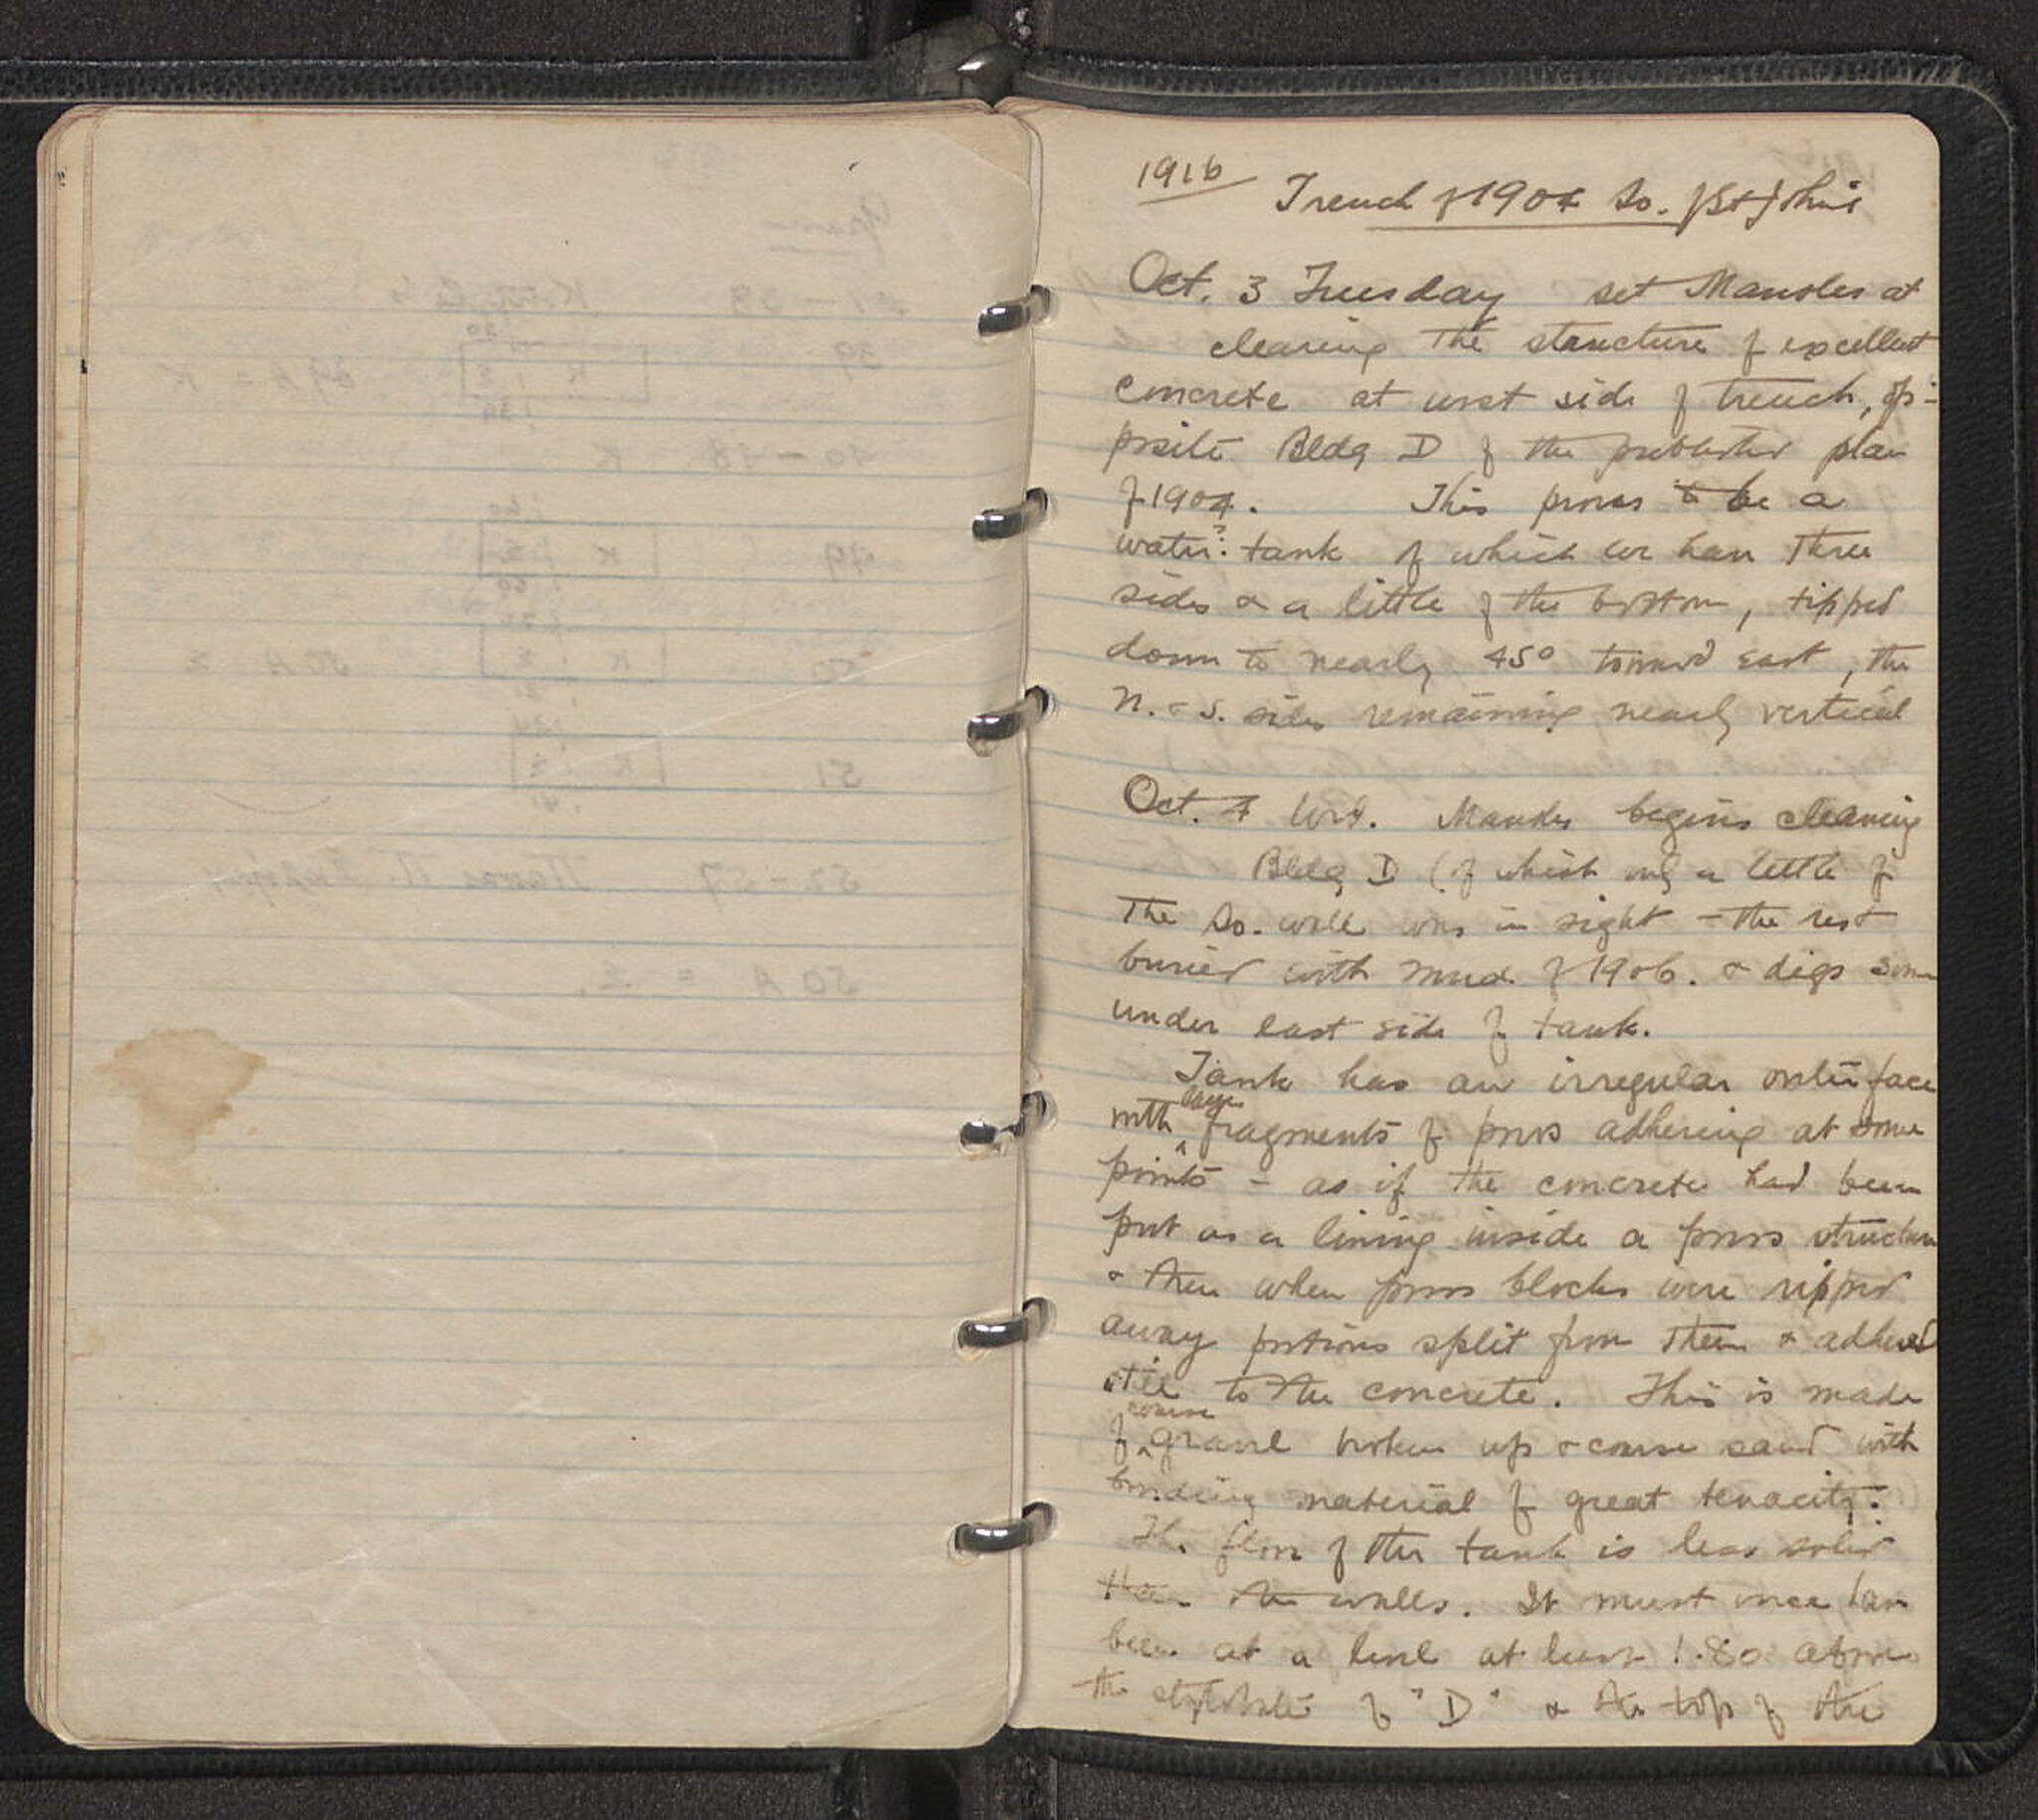 1916
Trench of 1904 So. of St John's
Oct. 3 Tuesday set Manoles at
clearing the structure of excellent
concrete at west side of trench, op-
posite Bldg D of the published plan
of 1904. This proves to be a
water? tank of which we have three
sides & a little of the bottom, tipped
down to nearly 45° toward east, the
N. & S. sides remaining nearly vertical
Oct. 4 Wed. Manoles begins cleaning
Bldg D (of which only a little of
the So. wall was in sight – the rest
buried with mud of 1906. & digs some
under east side of tank.
Tank has an irregular outer face
with large fragments of poros adhering at some
points – as if the concrete had been
put as a lining inside a poros structure
& then when poros blocks were ripped
away portions split from them & adhered
still to the concrete. This is made
of coarse gravel broken up & coarse sand with
binding material of great tenacity.
The floor of the tank is less solid
than the walls. It must once have
been at a level at least 1.80 above
the stylobate of "D" & the top of the